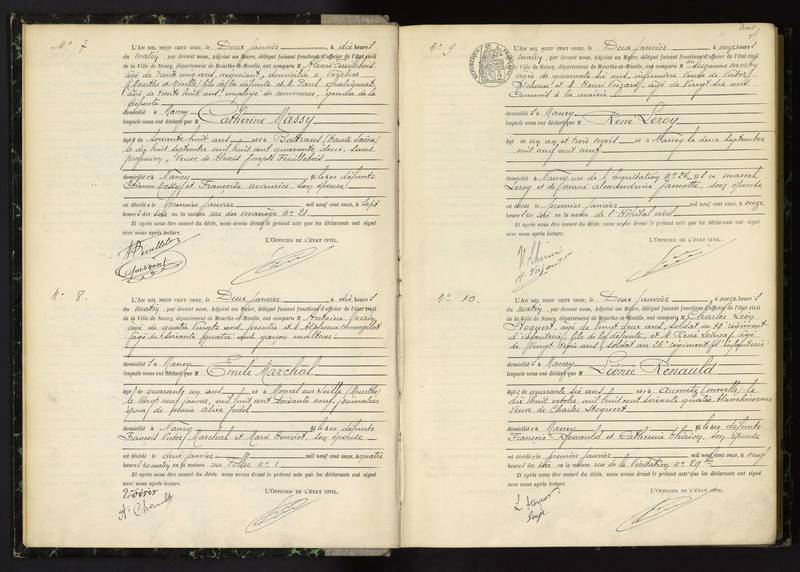 N° 7
L'AN MIL NEUF CENT ONZE, le Deux janvier à dix heures
du matin, par devant nous, Adjoint au Maire, délégué faisant fonctions d'officier de l'état civil
de la Ville de Nancy, département de Meurthe-et-Moselle, ont comparu M Alexis Feuillebois
âgé de trente cinq ans, négociant, domicilié à Vézelise
(Meurthe et Moselle) fils de la défunte et M. Paul
âgé de trente huit ans, employé de commerce, gendre de la
défunte
domiciliés à Nancy
lesquels nous ont déclaré que M Catherine Massy
âgée de soixante huit ans née à (Haute Saône)
le dix huit septembre mil huit cent quarante deux, sans
profession, Veuve de Alexis Joseph Feuillebois
domiciliée à Nancy fille des défunts
Etienne Massy et Françoise Maurice, son épouse
est décédée le premier janvier mil neuf cent onze, à sept
heures du soir en la maison rue du manège n° 21.
Et après nous être assuré du décès, nous avons dressé le présent acte que les déclarants ont signé
avec nous après lecture.
L'OFFICIER DE L'ÉTAT CIVIL,
N° 8.
L'AN MIL NEUF CENT ONZE, le Deux janvier à dix heures
du matin, par devant nous, Adjoint au Maire, délégué faisant fonctions d'officier de l'état civil
de la Ville de Nancy, département de Meurthe-et-Moselle, ont comparu M Antoine Voirin
âgé de quatre vingts ans, peintre et M. Alphonse
âgé de soixante quatre ans garçon
domiciliés à Nancy
lesquels nous ont déclaré que M Emile Marchal
âgé de quarante un ans né à Moncel sur Seille (Meurthe)
le vingt neuf janvier, mil huit cent soixante neuf, journalier
époux de Marie Alice Jodel
domicilié à Nancy fils des défunts
François Victor Marchal et Marie Henriot, son épouse
est décédé le deux janvier mil neuf cent onze, à quatre
heures du matin en la maison rue Foller n° 1
Et après nous être assuré du décès, nous avons dressé le présent acte que les déclarants ont signé
avec nous après lecture.
L'OFFICIER DE L'ÉTAT CIVIL,
Voirin
N° 9
L'AN MIL NEUF CENT ONZE, le Deux janvier à onze heures
du matin, par devant nous, Adjoint au Maire, délégué faisant fonctions d'officier de l'état civil
de la Ville de Nancy, département de Meurthe-et-Moselle, ont comparu M Suzanne
âgée de quarante six ans, infirmière, veuve de Victor
et M. Henri âgé de vingt six ans
commis à la mairie
domiciliés à Nancy
lesquels nous ont déclaré que M René Leroy
âgé de un an et trois mois né à Nancy le deux septembre
mil neuf cent neuf
domicilié à Nancy rue de l'Equitation n° 26 fils de Marcel
Leroy et de Jeanne Alexandrine Jamotte, son épouse
est décédé le premier janvier mil neuf cent onze, à onze
heures du soir en la maison de l'Hôpital civil
Et après nous être assuré du décès, nous avons dressé le présent acte que les déclarants ont signé
avec nous après lecture.
L'OFFICIER DE L'ÉTAT CIVIL,
N° 10.
L'AN MIL NEUF CENT ONZE, le Deux janvier à onze heures
du matin, par devant nous, Adjoint au Maire, délégué faisant fonctions d'officier de l'état civil
de la Ville de Nancy, département de Meurthe-et-Moselle, ont comparu M Charles Léon
âgé de vingt deux ans, soldat au régiment
d'infanterie, fils de la défunte, et M. René âgé
de vingt trois ans, soldat au 26e régiment d'infanterie
domiciliés à Nancy
lesquels nous ont déclaré que M Léonie Renauld
âgée de quarante six ans née à Aumetz (Moselle) le
dix huit octobre mil huit cent soixante quatre, blanchisseuse
Veuve de Charles
domiciliée à Nancy fille des défunts
François Renauld et Catherine Thirion, son épouse
est décédée le premier janvier mil neuf cent onze, à neuf
heures du soir, en la maison rue de la Visitation n° 29 ter
Et après nous être assuré du décès, nous avons dressé le présent acte que les déclarants ont signé
avec nous après lecture.
L'OFFICIER DE L'ÉTAT CIVIL,